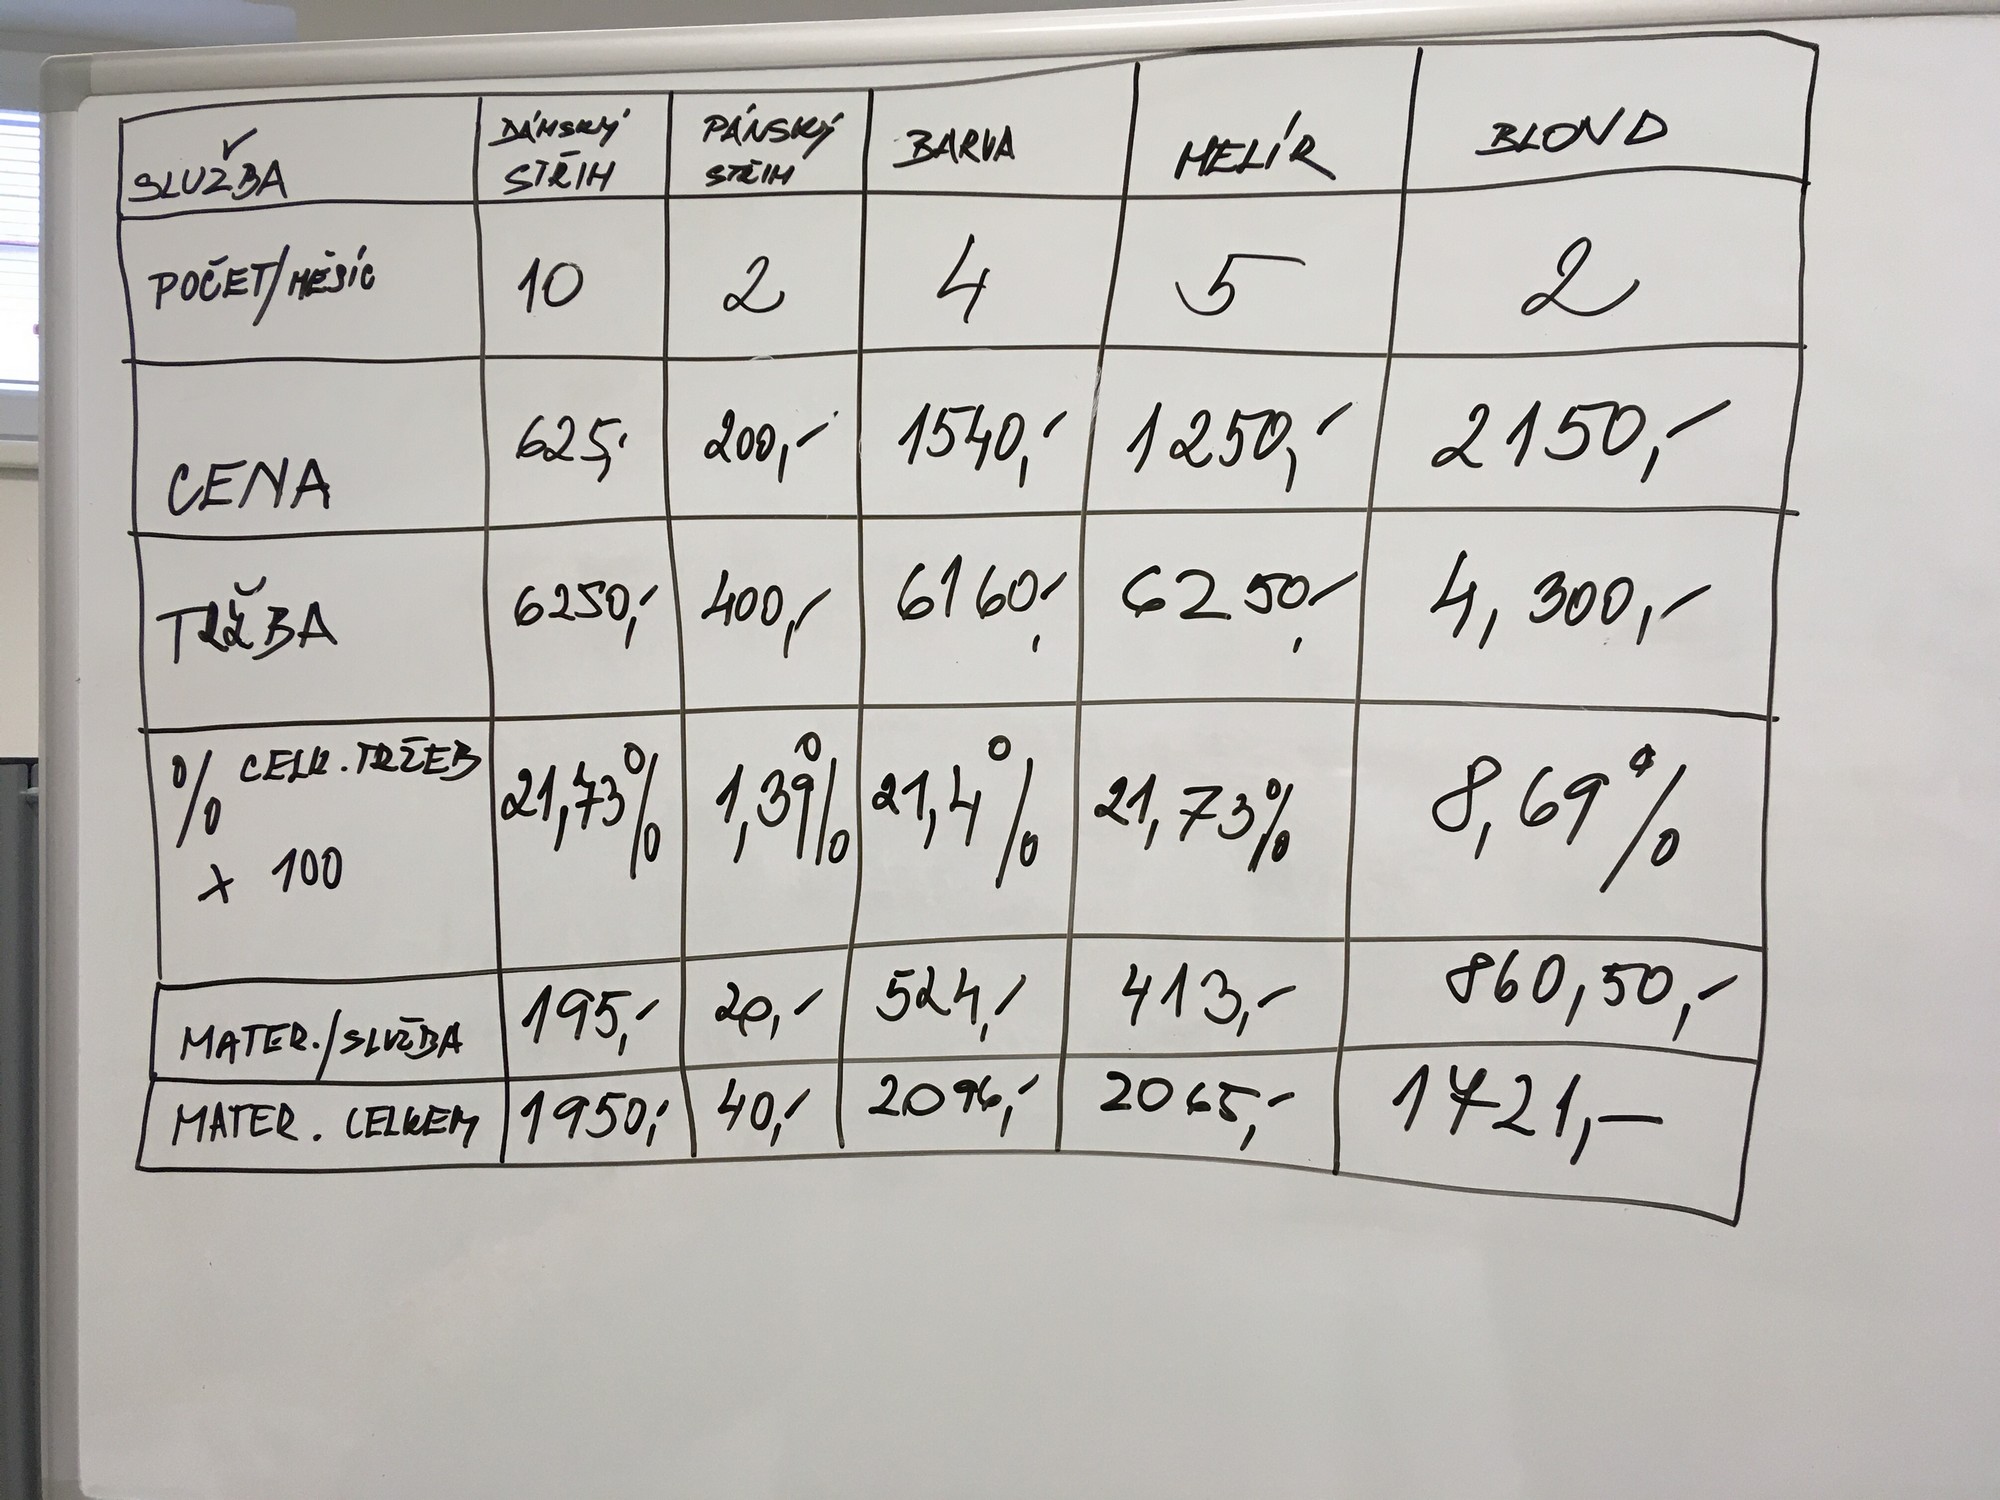 SLUŽBA DÁMSKÝ STŘIH PÁNSKÝ STŘIH BARVA MELÍR BLOND
POČET/MĚSÍC 10 2 4 5 2
CENA 625,- 200,- 1540,- 1250,- 2150,-
TRŽBA 6250,- 400,- 6160,- 6250,- 4,300,-
% CELK. TRŽEB 21,73% 1,39% 21,4% 21,73% 8,69%
x 100
MATER./SLUŽBA 195,- 20,- 524,- 413,- 860,50,-
MATER. CELKEM 1950,- 40,- 2096,- 2065,- 1721,-